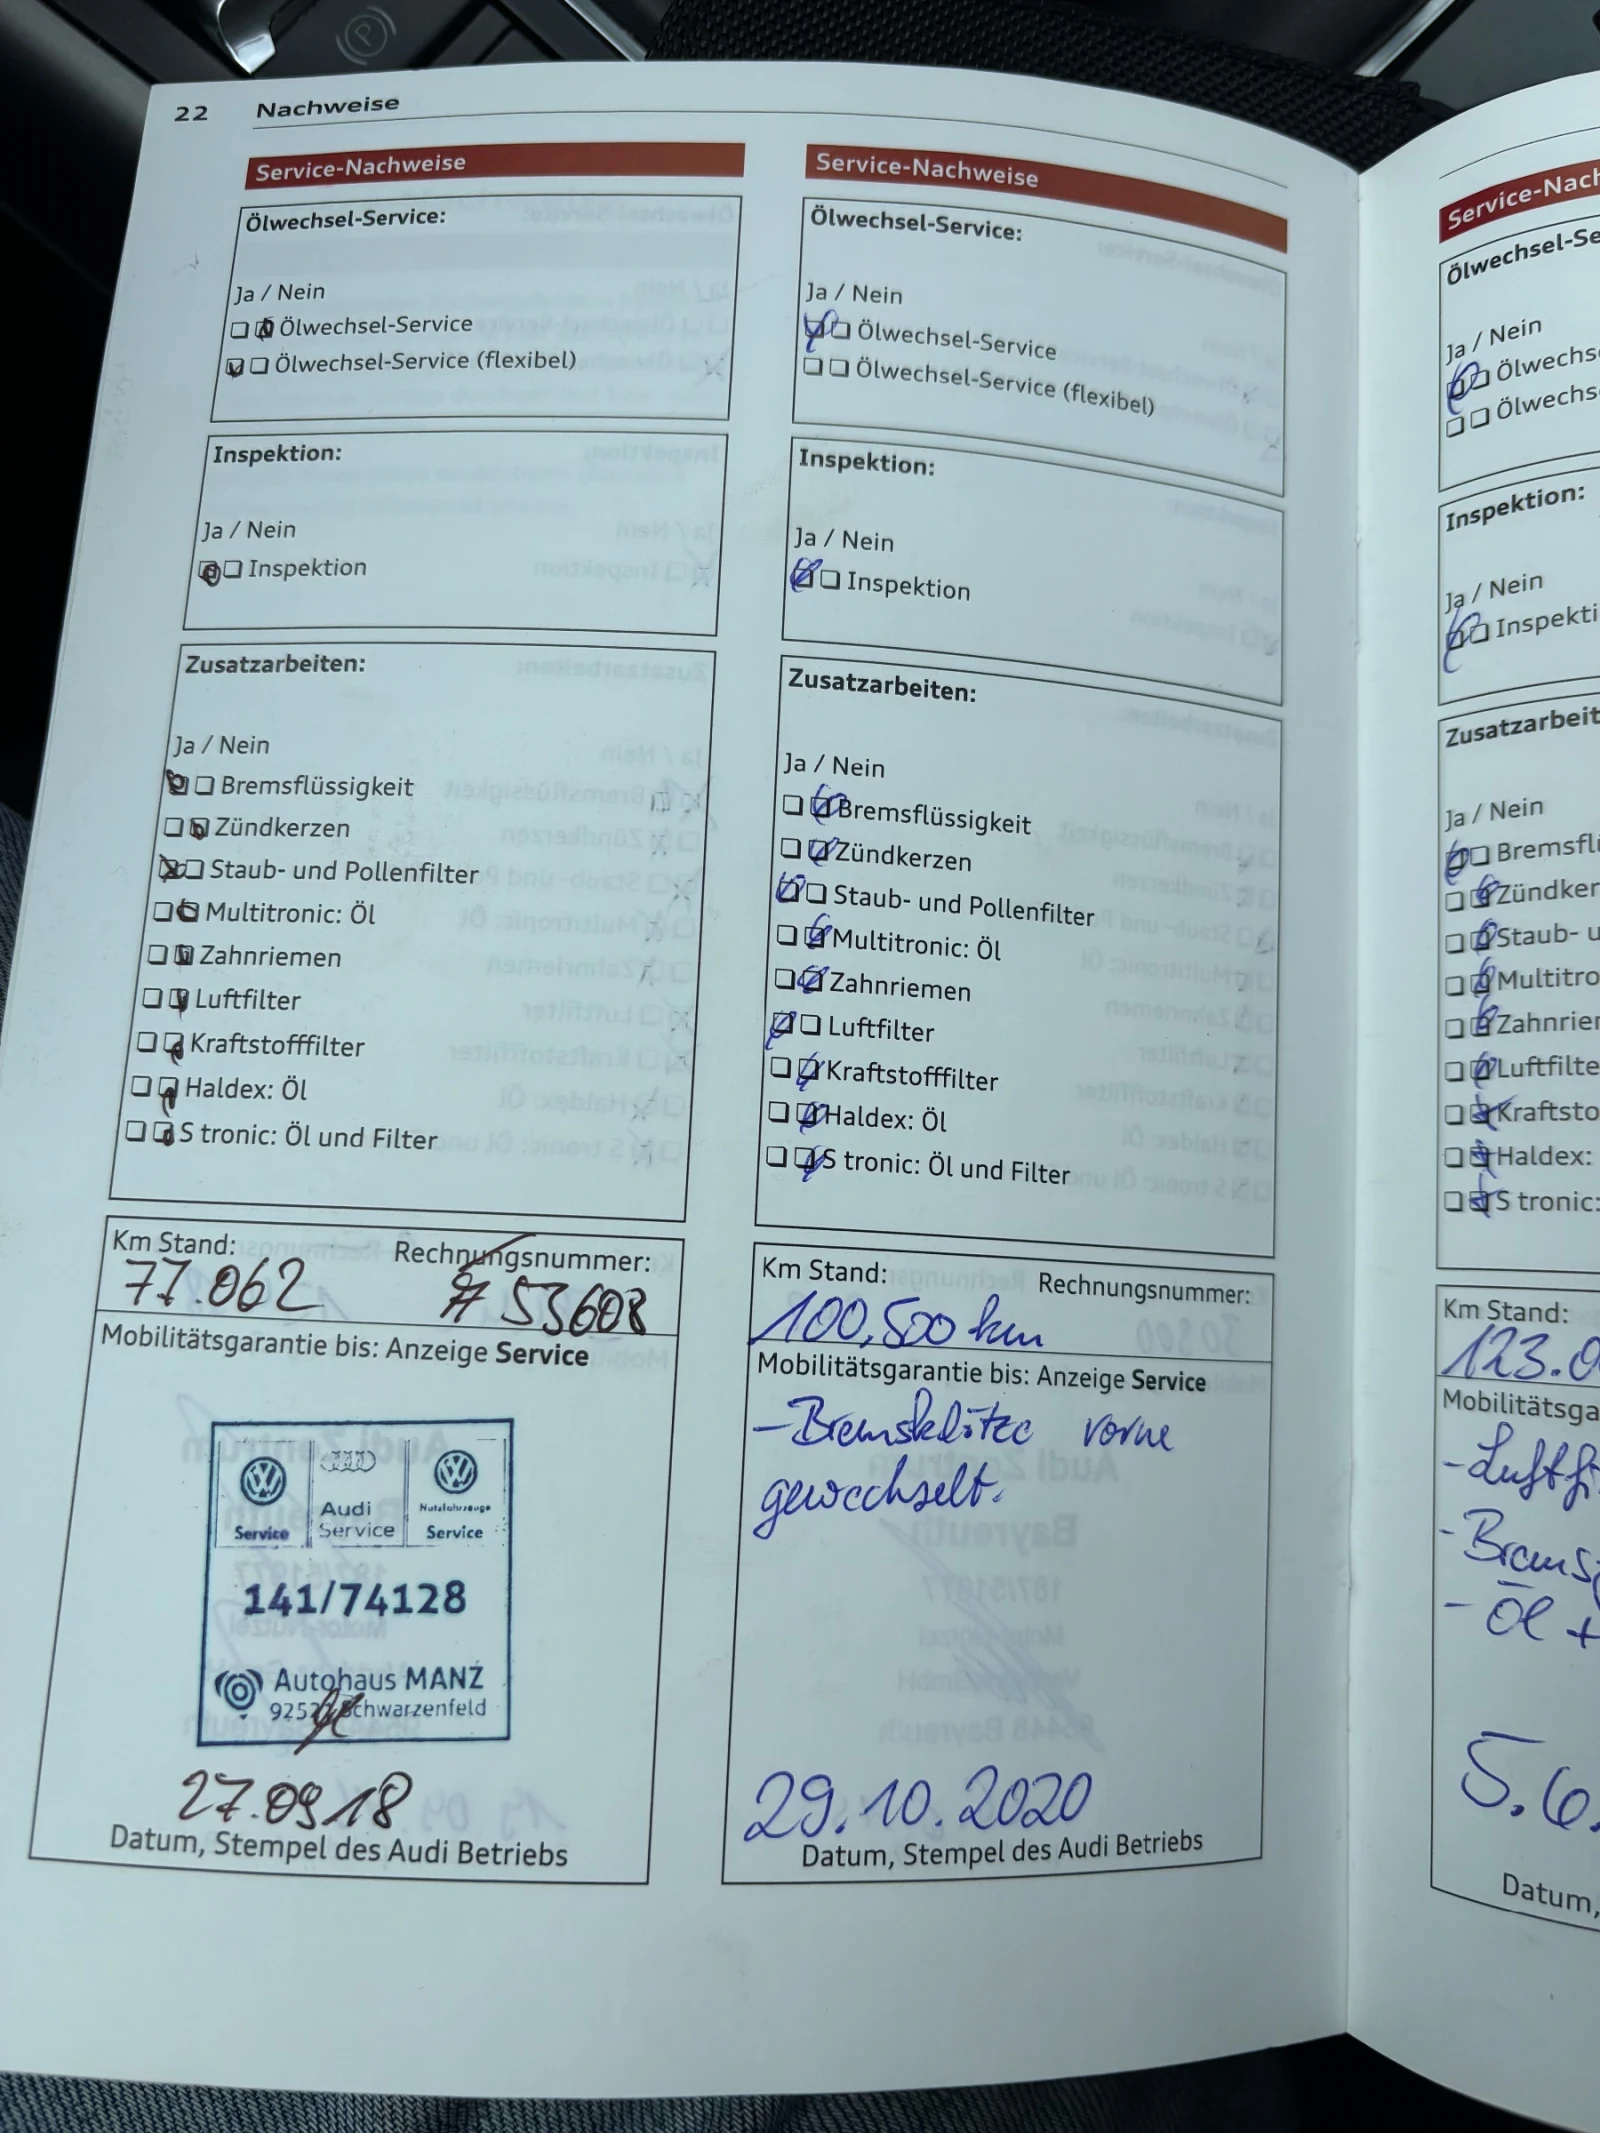 22 Nachweise
Service-Nachweise
Ölwechsel-Service:
Ja / Nein
Ölwechsel-Service
Ölwechsel-Service (flexibel)
Inspektion:
Ja / Nein
Inspektion
Zusatzarbeiten:
Ja / Nein
Bremsflüssigkeit
Zündkerzen
Staub- und Pollenfilter
Multitronic: Öl
Zahnriemen
Luftfilter
Kraftstofffilter
Haldex: Öl
S tronic: Öl und Filter
Km Stand: Rechnungsnummer:
77.062 # 53608
Mobilitätsgarantie bis: Anzeige Service
Audi Nutzfahrzeuge
Service Service Service
141/74128
Autohaus MANZ
Schwarzenfeld
27.09.18
Datum, Stempel des Audi Betriebs
Service-Nachweise
Ölwechsel-Service:
Ja / Nein
Ölwechsel-Service
Ölwechsel-Service (flexibel)
Inspektion:
Ja / Nein
Inspektion
Zusatzarbeiten:
Ja / Nein
Bremsflüssigkeit
Zündkerzen
Staub- und Pollenfilter
Multitronic: Öl
Zahnriemen
Luftfilter
Kraftstofffilter
Haldex: Öl
S tronic: Öl und Filter
Km Stand: Rechnungsnummer:
100,500 km
Mobilitätsgarantie bis: Anzeige Service
- Bremsklötze vorne
gewechselt.
29.10.2020
Datum, Stempel des Audi Betriebs
Service-Nach
Ölwechsel-Se
Ja / Nein
Ölwechs
Ölwechs
Inspektion:
Ja / Nein
Inspekti
Zusatzarbeit
Ja / Nein
Bremsfl
Zündker
Staub- u
Multitro
Zahnrie
Luftfilte
Kraftsto
Haldex:
S tronic:
Km Stand:
123.0
Mobilitätsga
- Luftfi
- Brems
- Öl +
5.6.
Datum,